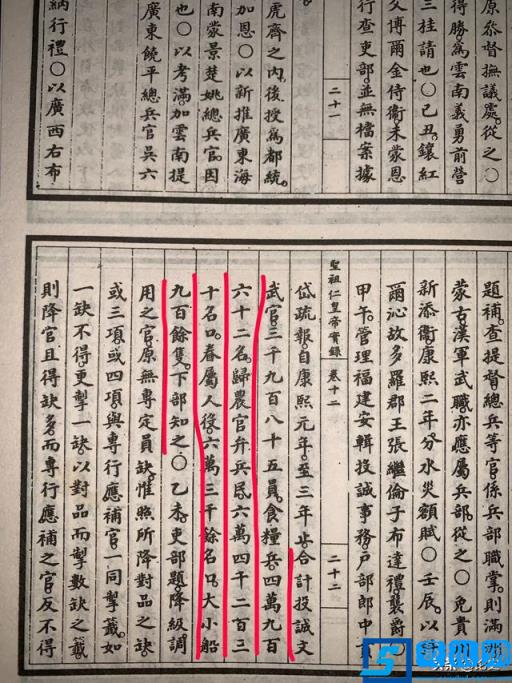 原恭督撫議處從之〇
得勝為雲南義勇前營
三桂請也〇己丑鑲紅
久博爾金侍衛未蒙恩
行查吏部並無檔案據
二十一
虎齊之内後授為都統
加恩〇以新推廣東海
南蒙景楚姚總兵官因
也〇以考滿加雲南提
廣東饒平總兵官吳六
納行禮〇以廣西右布
題補查提督總兵等官係兵部職掌則滿洲
蒙古漢軍武職亦應屬兵部從之〇免貴州
新添衛康熙二年分水災額賦〇壬辰以
爾沁故多羅郡王張繼倫子布達禮襲爵〇
甲午管理福建安輯投誠事務戶部郎中
聖祖仁皇帝實錄 卷十二
二十二
岱疏報自康熙元年至三年止合計投誠文
武官三千九百八十五員食糧兵四萬九百
六十二名歸農官弁兵民六萬四千二百三
十名口眷屬人役六萬三千餘名口大小船
九百餘隻下部知之〇乙未吏部題降級調
用之官原無專定員缺惟照所降對品之缺
或三項或四項與專行應補官一同掣籤如
一缺不得更掣一缺以對品而掣數缺之籤
則降官且得缺多而專行應補之官反不得